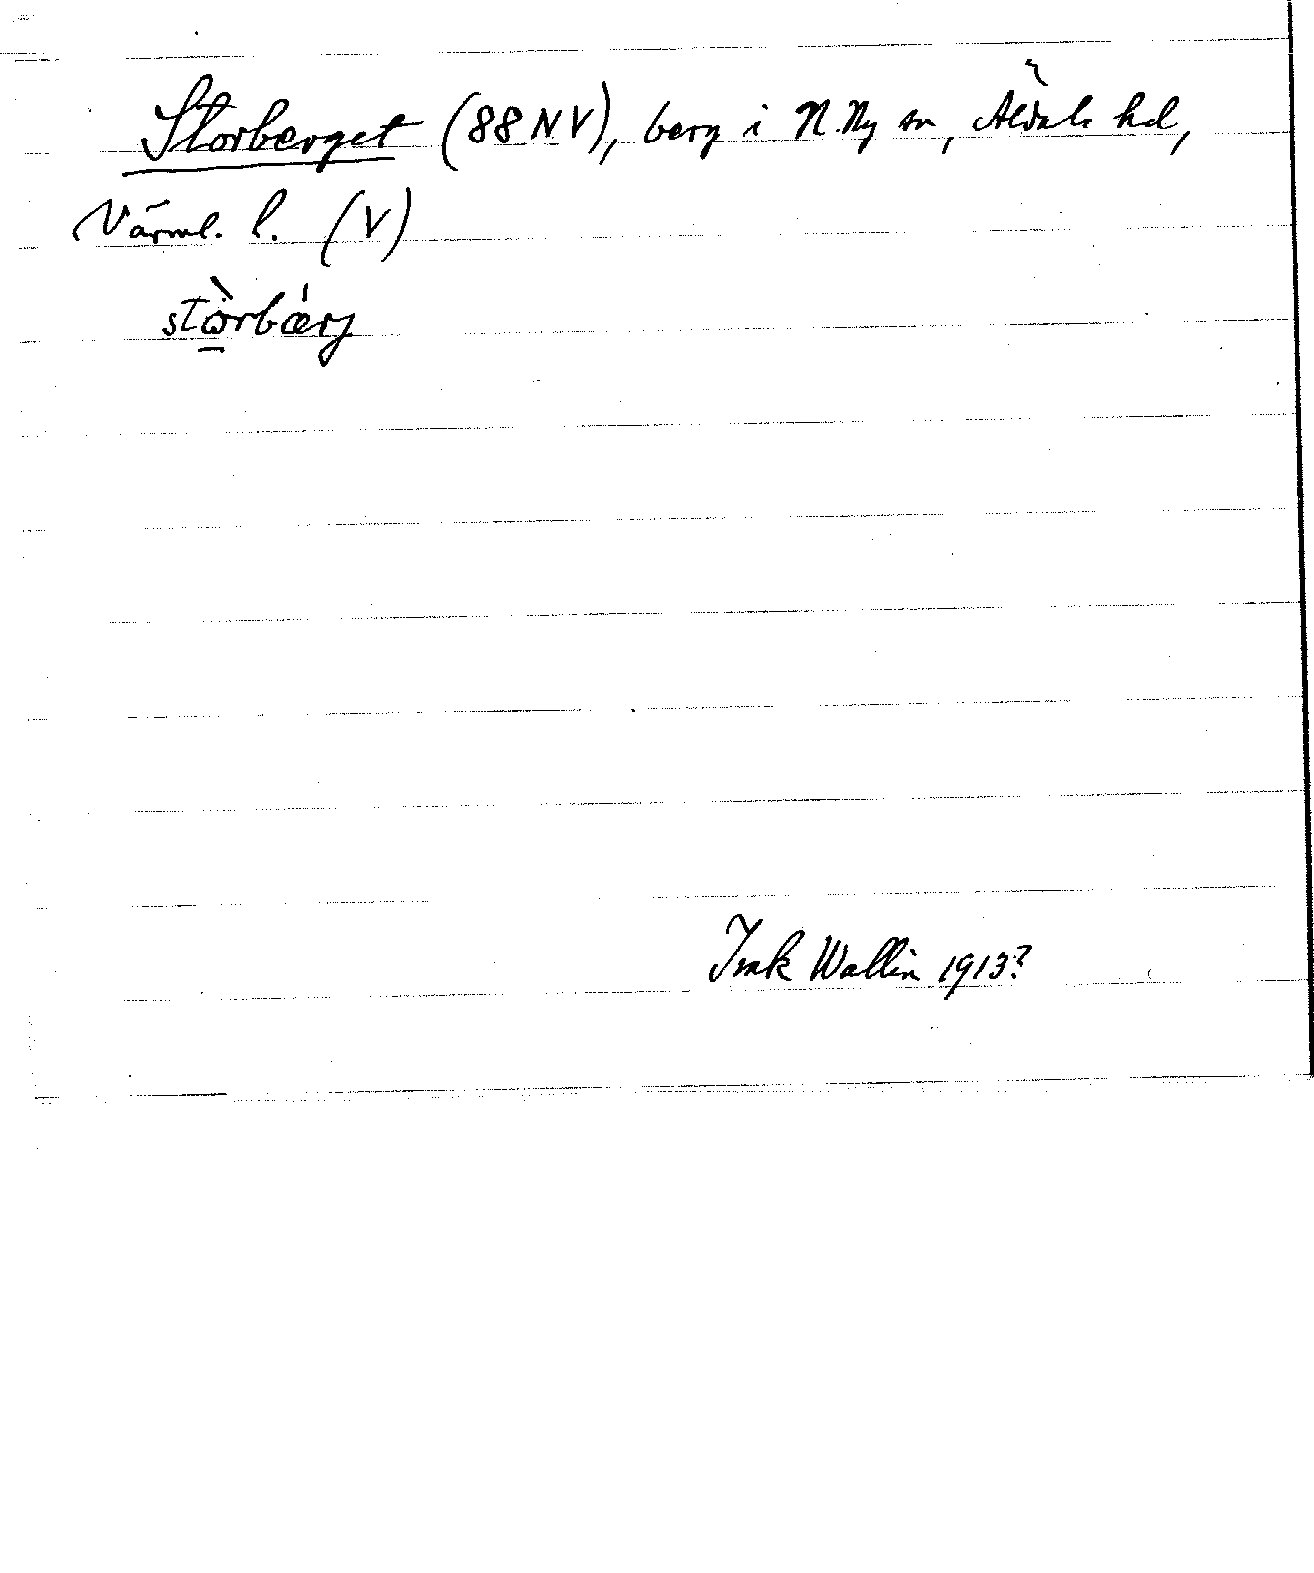 Storberget (88 NV), berg i N. Ny sn, Älvdals hd,
Värml. l. (V)
stòrbǽrj
Isak Wallin 1913?